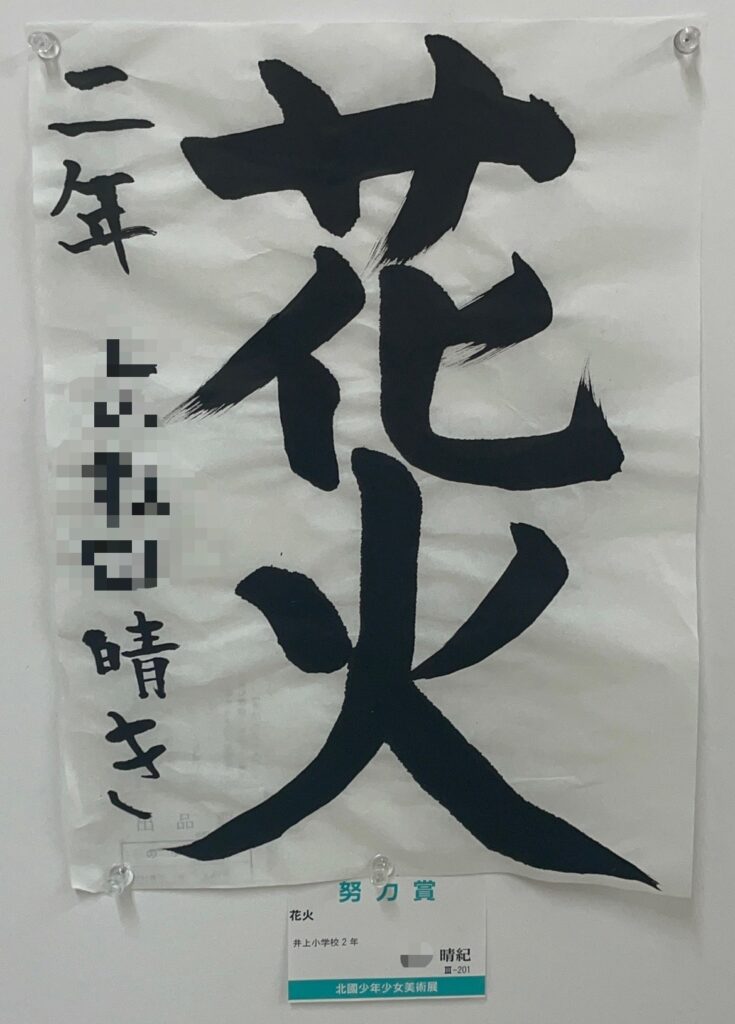 花火
二年
晴き
努力賞
花火
井上小学校2年
晴紀
Ⅲ-201
北國少年少女美術展